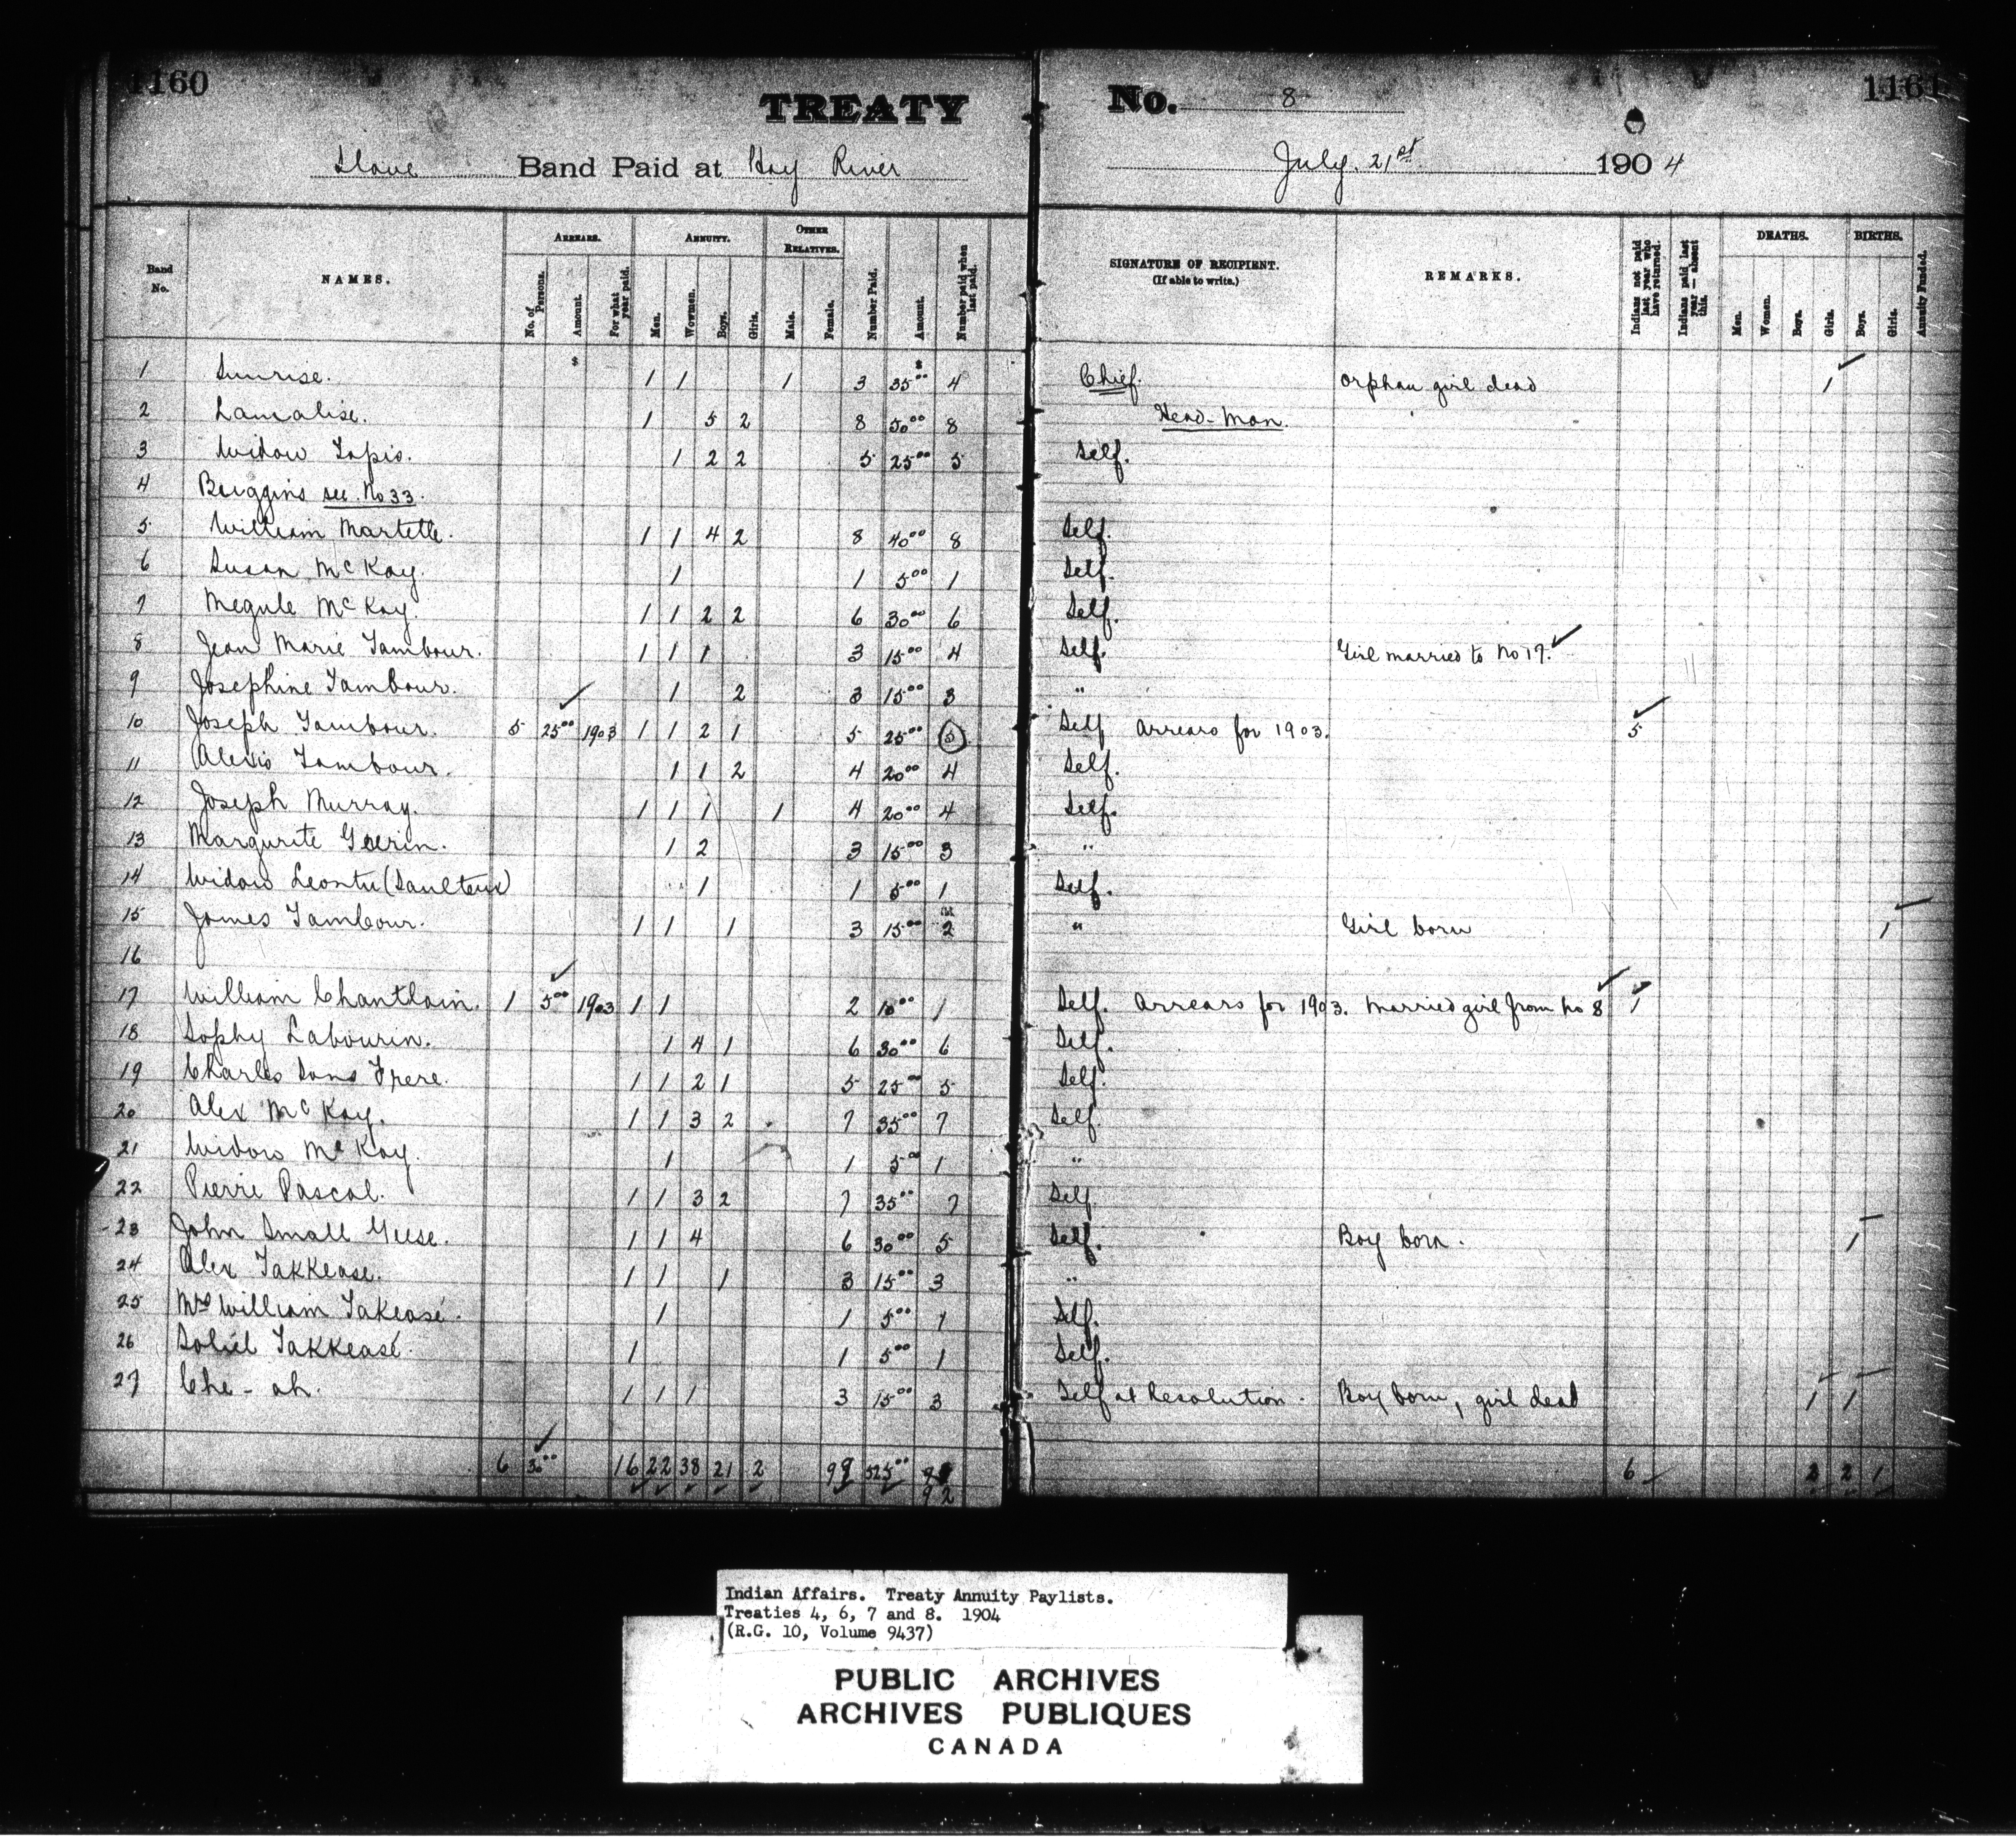 1160
TREATY No. 8
1161
Slave Band Paid at Hay River July. 21st 1904
Band No.
NAMES.
ARREARS.
No. of Persons.
Amount.
For what year paid.
ANNUITY.
Men.
Women.
Boys.
Girls.
OTHER RELATIVES.
Male.
Female.
Number Paid.
Amount.
Number paid when last paid.
SIGNATURE OF RECIPIENT.
(If able to write.)
REMARKS.
Indians not paid last year who have returned.
Indians paid last year — absent this.
DEATHS.
Men.
Women.
Boys.
Girls.
BIRTHS.
Boys.
Girls.
Annuity Funded.
1 Sunrise. 1 1 1 3 35 00 4 Chief. Orphan girl dead 1
2 Lamalise. 1 5 2 8 50 00 8 Head-Man.
3 Widow Tapis. 1 2 2 5 25 00 5 Self.
4 Buggins see No 33.
5 William Martelle. 1 1 4 2 8 40 00 8 Self.
6 Susan McKay. 1 1 5 00 1 Self.
7 Megule McKay. 1 1 2 2 6 30 00 6 Self.
8 Jean Marie Tambour. 1 1 1 3 15 00 4 Self. Girl married to No 17.
9 Josephine Tambour. 1 2 3 15 00 3 "
10 Joseph Tambour. 5 25 00 1903 1 1 2 1 5 25 00 5 Self Arrears for 1903. 5
11 Alexis Tambour. 1 1 2 4 20 00 4 Self.
12 Joseph Murray. 1 1 1 1 4 20 00 4 Self.
13 Margurite Guerin. 1 2 3 15 00 3 "
14 Widow Leontu (Saulteux) 1 1 5 00 1 Self.
15 James Tambour. 1 1 1 3 15 00 2 " Girl born 1
16
17 William Chantlain. 1 5 00 1903 1 1 2 10 00 1 Self. Arrears for 1903. Married girl from No 8 1
18 Sophy Labourin. 1 4 1 6 30 00 6 Self.
19 Charles Sans Frere. 1 1 2 1 5 25 00 5 Self.
20 Alex McKay. 1 1 3 2 7 35 00 7 Self.
21 Widow McKay. 1 1 5 00 1 "
22 Pierre Pascal. 1 1 3 2 7 35 00 7 Self.
23 John Small Geese. 1 1 4 6 30 00 5 Self. Boy born. 1
24 Alex Takkease. 1 1 1 3 15 00 3 "
25 Mrs William Takease. 1 1 5 00 1 Self.
26 Soliel Takkease. 1 1 5 00 1 Self.
27 Che-ah. 1 1 1 3 15 00 3 Self at Resolution. Boy born, girl dead 1 1
6 30 00 16 22 38 21 2 99 525 00 92 6 2 2 1
Indian Affairs. Treaty Annuity Paylists.
Treaties 4, 6, 7 and 8. 1904
(R.G. 10, Volume 9437)
PUBLIC ARCHIVES
ARCHIVES PUBLIQUES
CANADA